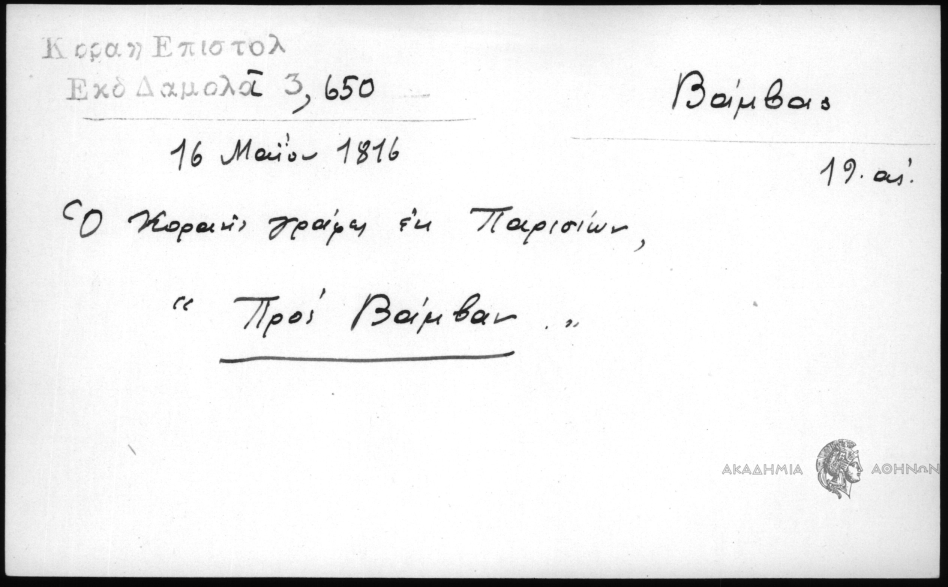 Κοραη Επιστολ
Εκδ Δαμαλᾶ 3, 650
Βάμβας
16 Μαΐου 1816
19. αἰ.
Ὁ Κοραῆς γράφει ἐκ Παρισίων,
“ Πρὸς Βάμβαν . „
ΑΚΑΔΗΜΙΑ ΑΘΗΝΩΝ